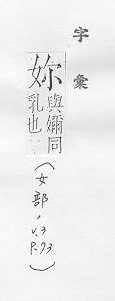 字彙
妳
與嬭同
乳也
(女部, v.3
P.73)